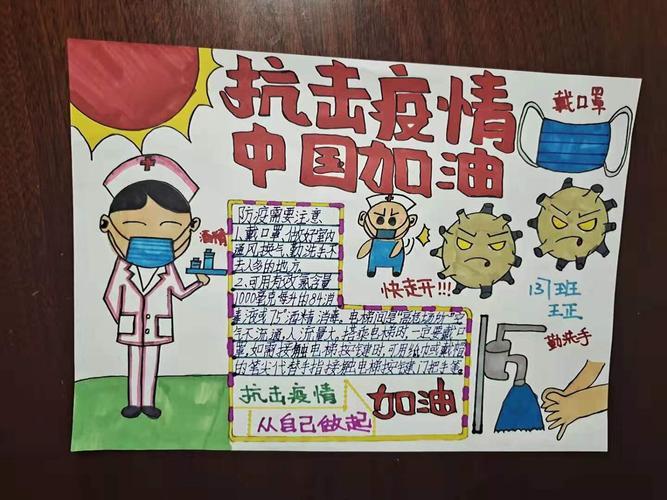 抗击疫情
中国加油
戴口罩
酒精
防疫需要注意
1、戴口罩,做好室内
通风换气,勤洗手,不
去人多的地方。
2、可用有效氯含量
1000毫克每升的84消
毒液或75°酒精消毒。电梯间是密闭场所空
气不流通,人流量大,搭乘电梯时,一定要戴口
罩,如需接触电梯按键时,可用纸巾或戴帽
的笔尖代替手指接触电梯按键
快走开!!!
137班
王正
勤洗手
抗击疫情
加油
从自己做起